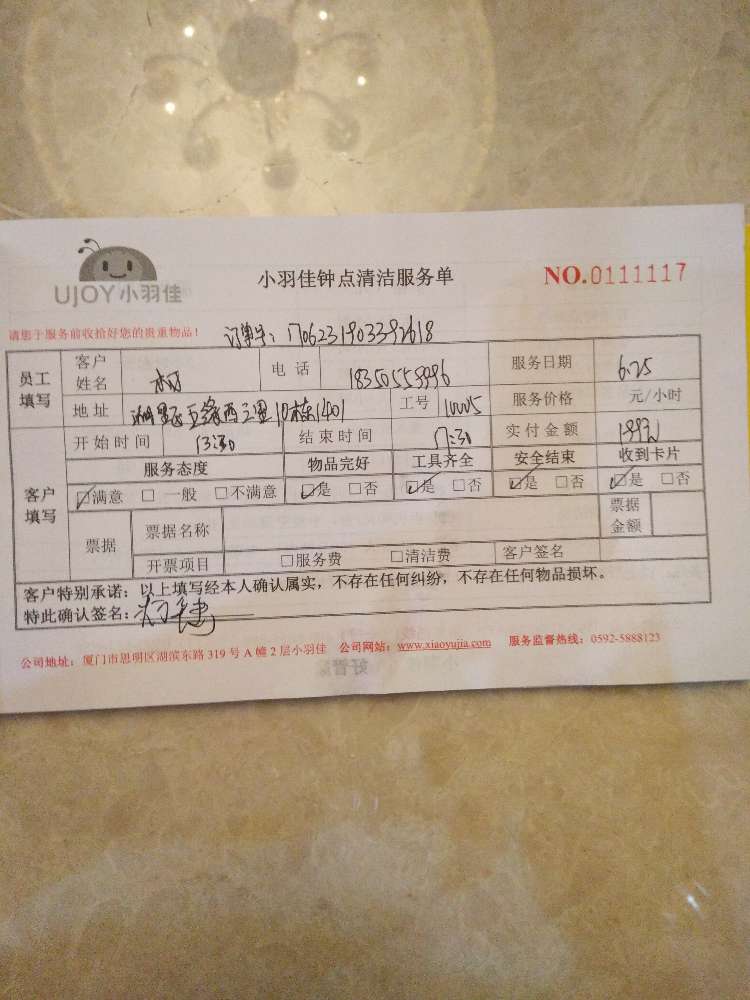 UJOY小羽佳
小羽佳钟点清洁服务单
NO.0111117
请您于服务前收拾好您的贵重物品!
订单号:1706231903392618
员工填写 客户姓名 电话 18350559996 服务日期 6.25
地址 五缘西三里 1401 工号 10005 服务价格 元/小时
客户填写 开始时间 13:30 结束时间 17:30 实付金额
服务态度 物品完好 工具齐全 安全结束 收到卡片
☑满意 □一般 □不满意 ☑是 □否 ☑是 □否 ☑是 □否 ☑是 □否
票据 票据名称 票据金额
开票项目 □服务费 □清洁费 客户签名
客户特别承诺:以上填写经本人确认属实,不存在任何纠纷,不存在任何物品损坏。
特此确认签名:
公司地址:厦门市思明区湖滨东路 319 号 A 幢 2 层小羽佳 公司网站:www.xiaoyujia.com 服务监督热线:0592-5888123